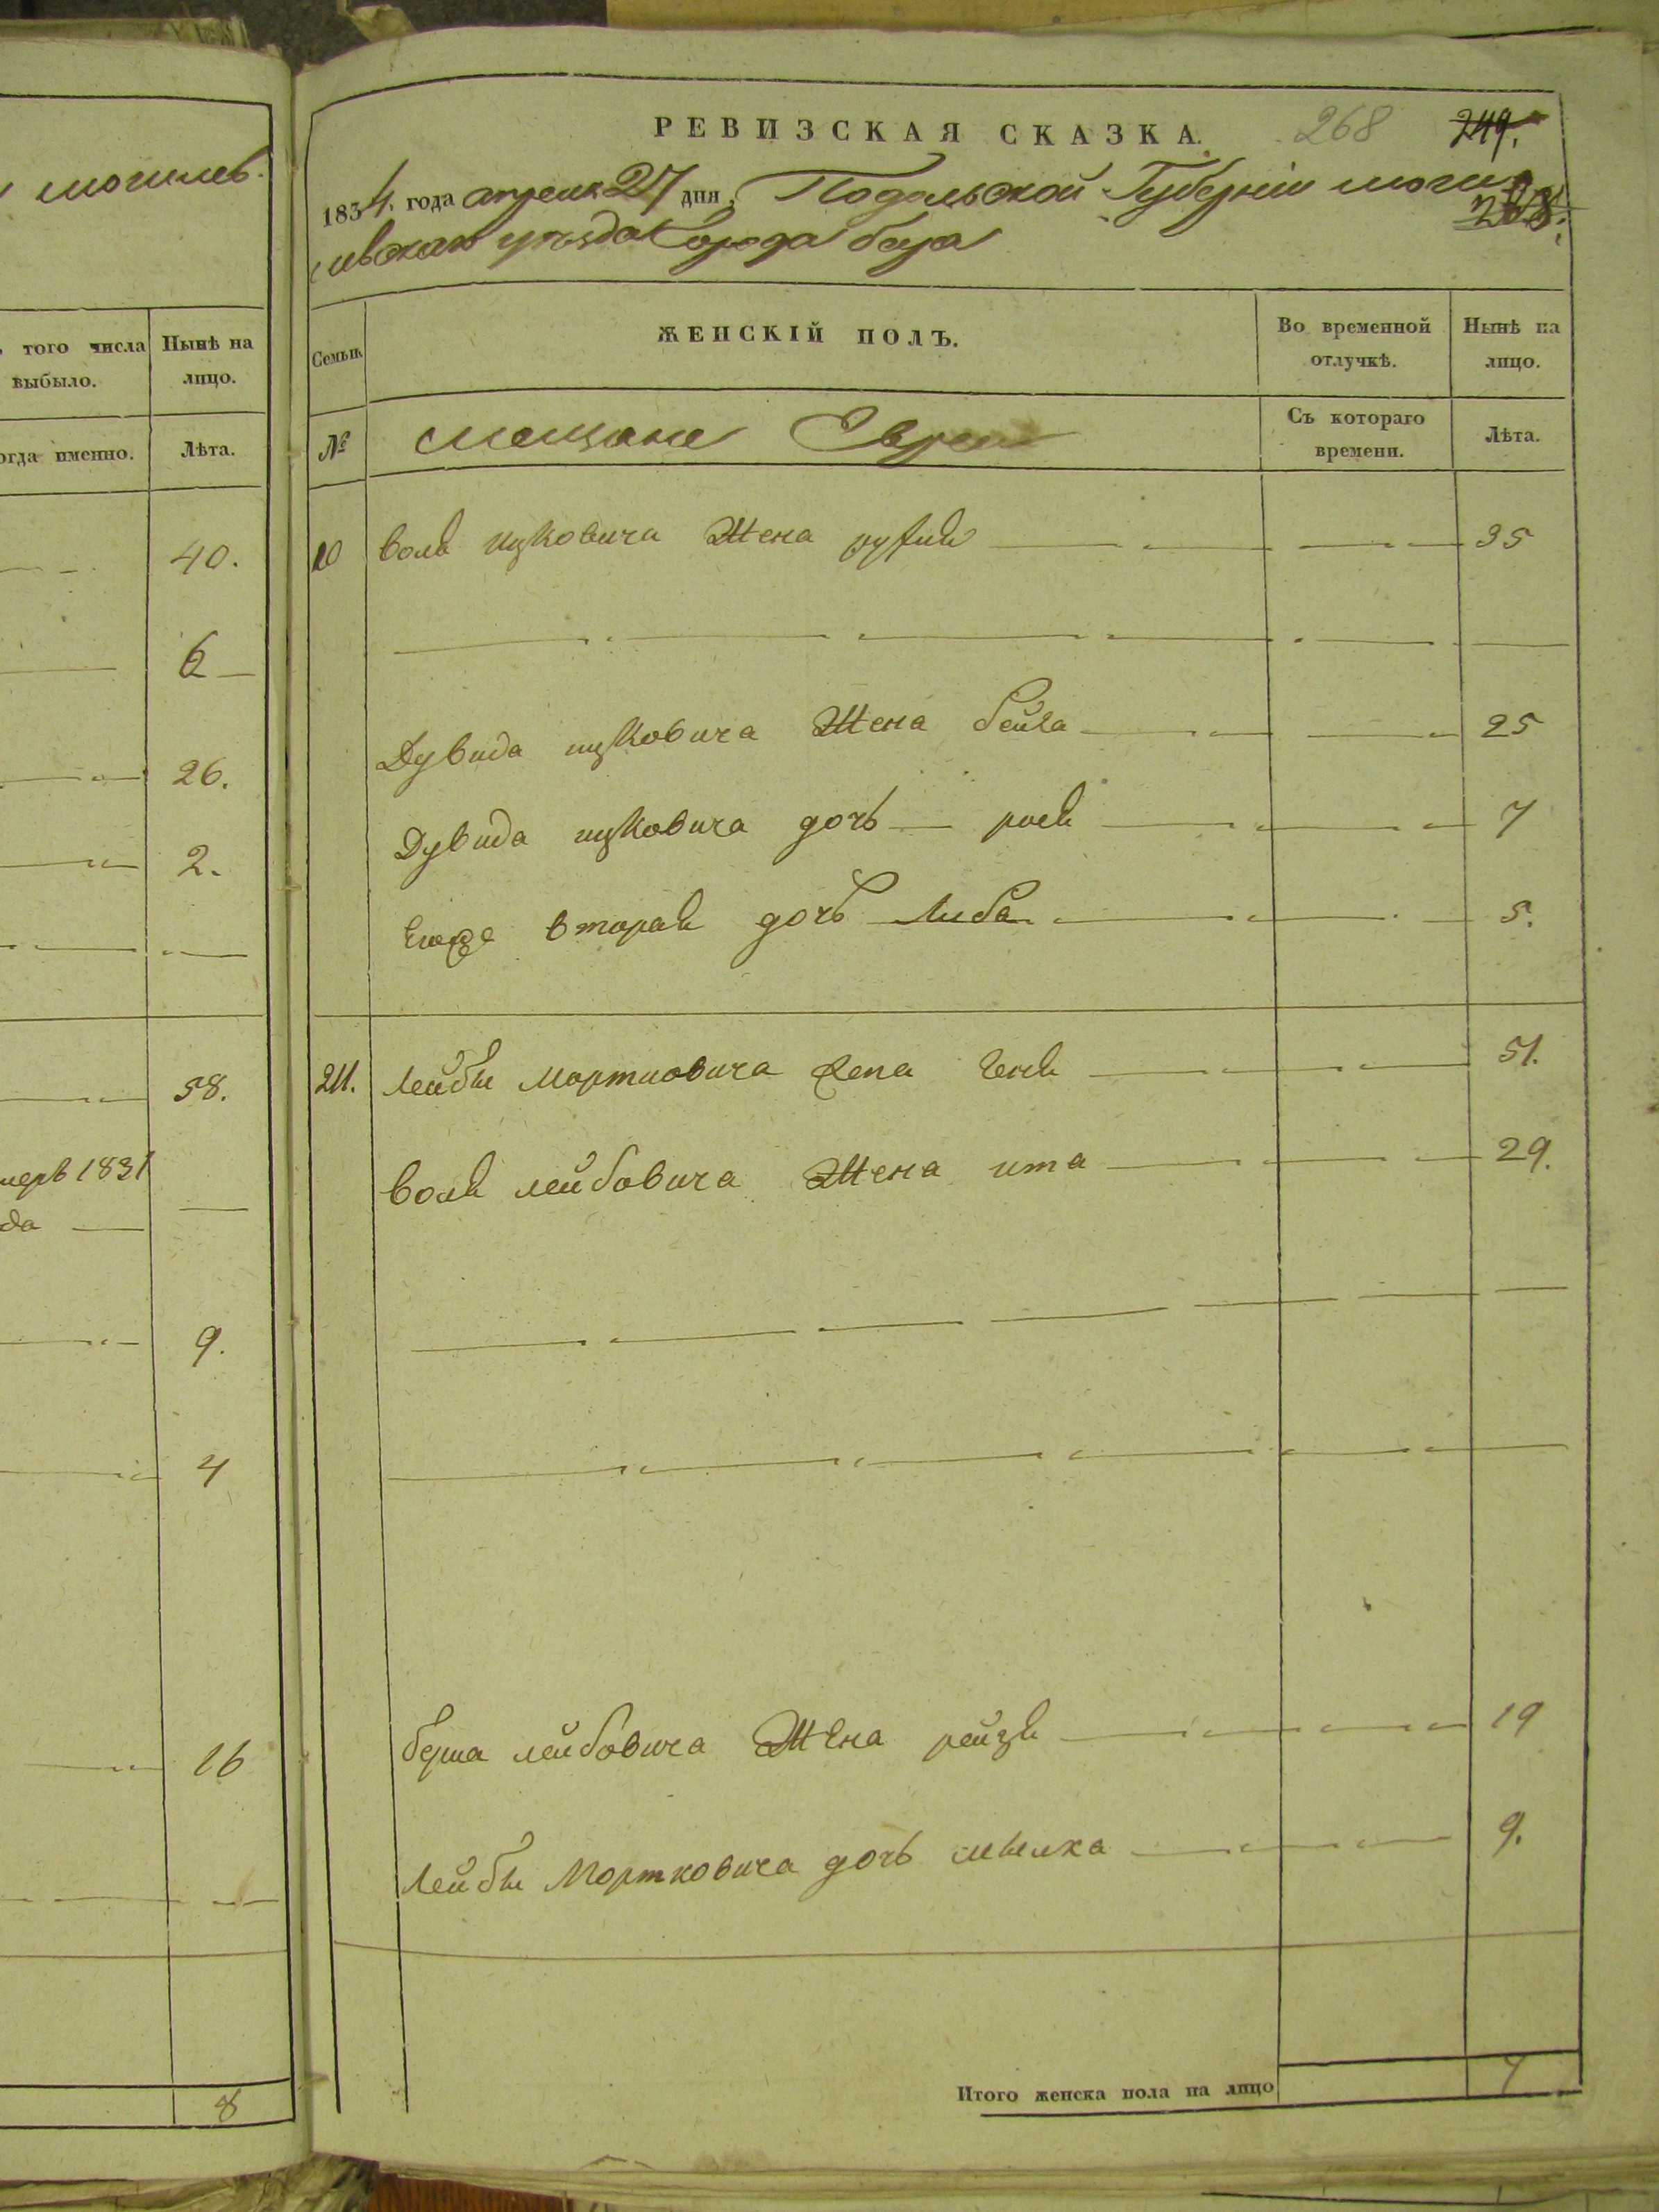 могилев.
того числа выбыло.
Нынѣ на лицо.
огда именно.
Лѣта.
40.
6
26.
2.
58.
1831
да
9.
4
16
8
РЕВИЗСКАЯ СКАЗКА.
268 249.
1834. года апреля 27 дня, Подольской Губерніи моги
левскаго уѣзда Города бара
Семьи.
ЖЕНСКІЙ ПОЛЪ.
Во временной отлучкѣ.
Нынѣ на лицо.
№
мещане Евреи
Съ котораго времени.
Лѣта.
воля ицковича жена рухля 35
Дувида ицковича жена бейла 25
Дувида ицковича дочь 7
Его же вторая дочь Либа 5.
211. Лейбы Мортковича жена геня 51.
воля лейбовича жена ита 29.
берша лейбовича жена рейзя 19
Лейбы Мортковича дочь малка 9.
Итого женска пола на лицо 7